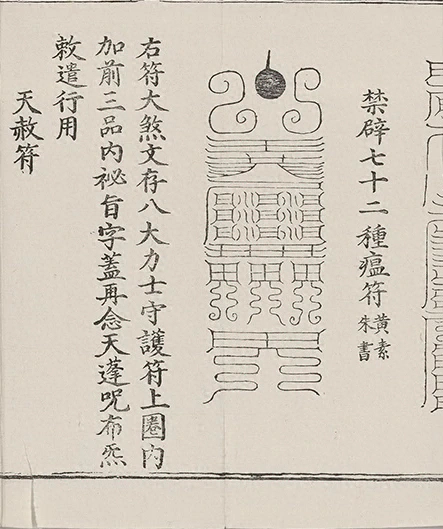 禁辟七十二種瘟符黄素朱書
右符大煞文存八大力士守護符上圈内
加前三品内祕旨字蓋再念天蓬呪布炁
敕遣行用
天赦符